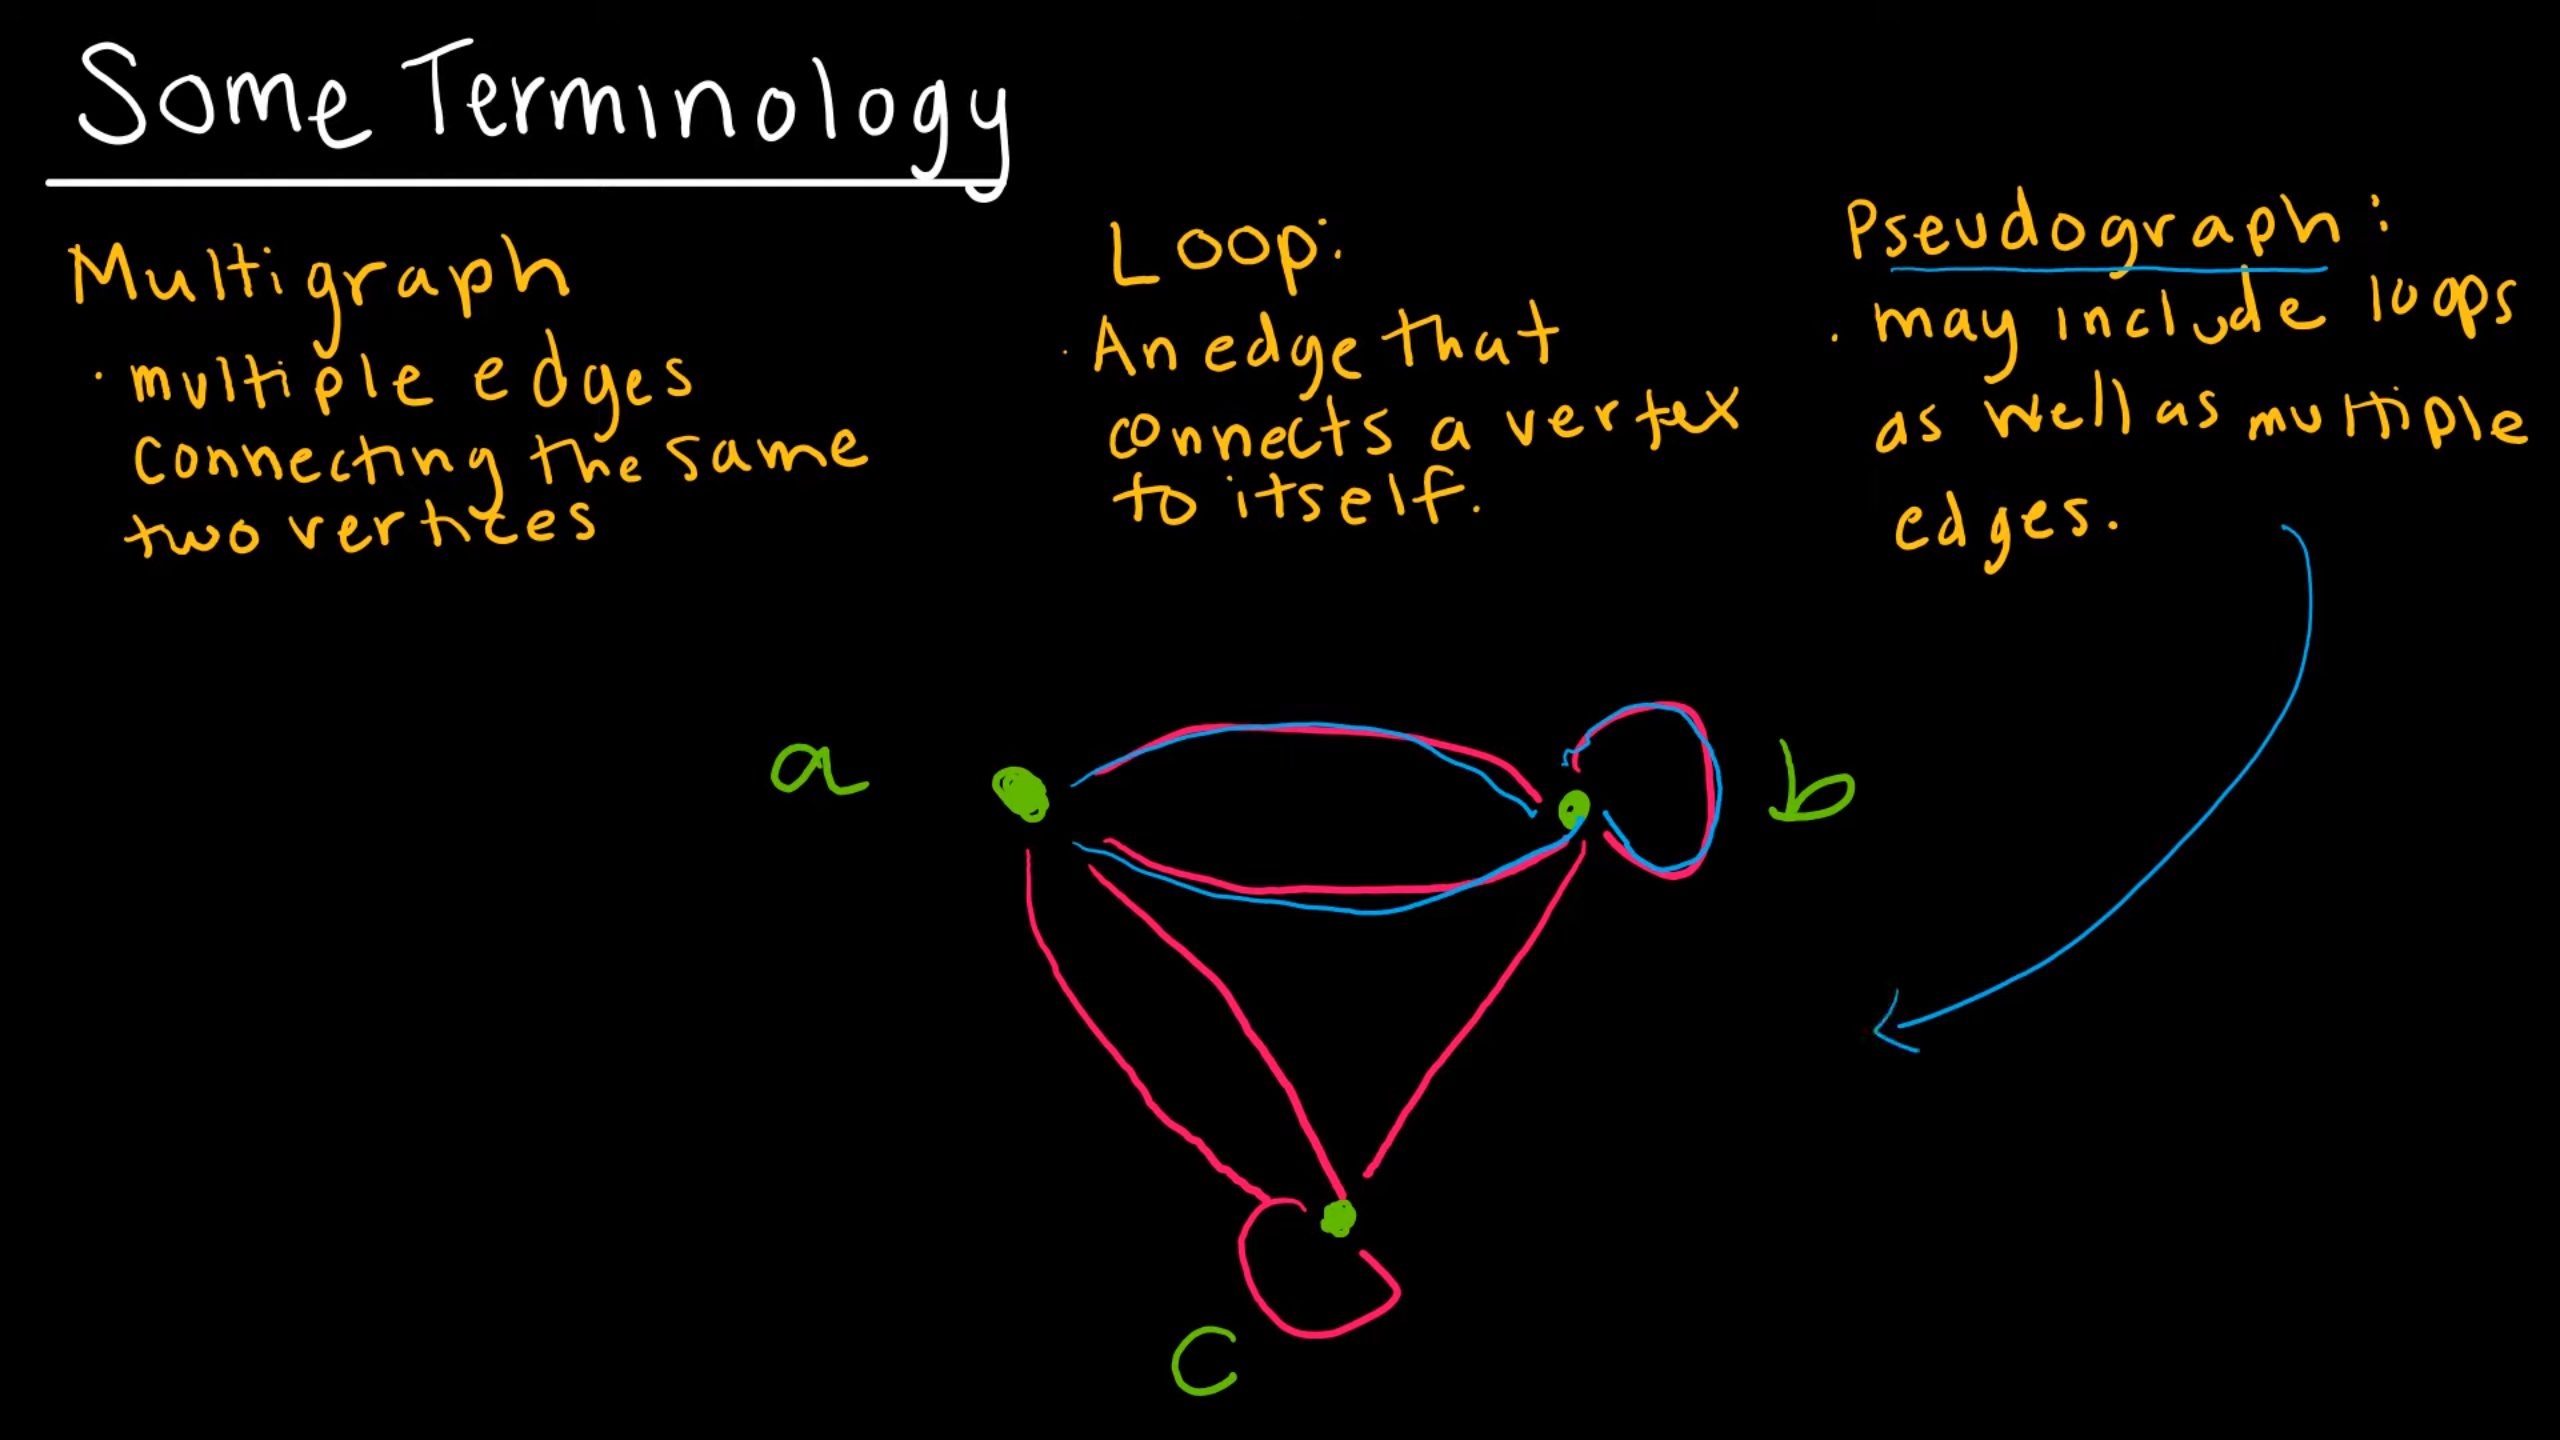 Some Terminology
Multigraph
· multiple edges
connecting the same
two vertices
Loop:
· An edge that
connects a vertex
to itself.
Pseudograph:
· may include loops
as well as multiple
edges.
a
b
c